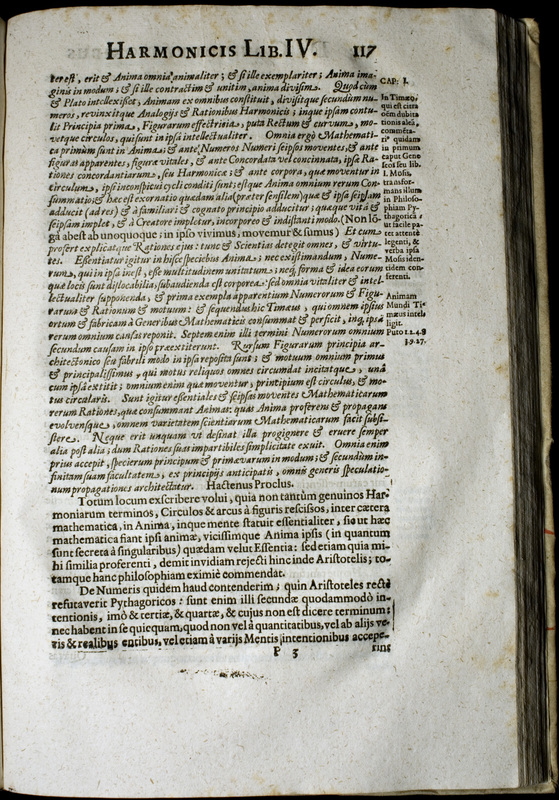 HARMONICIS LIB. IV. 117
ter est, erit & Anima omnia animaliter; & si ille exemplariter; Anima ima-
ginis in modum; & si ille contractim & unitim, anima divisim. Quod cùm
& Plato intellexisset, Animam ex omnibus constituit, divisitque secundùm nu-
meros, revinxitque Analogijs & Rationibus Harmonicis; inque ipsam contu-
lit Principia prima, Figurarum effectricia, puta Rectum & curvum, mo-
vetque circulos, qui sunt in ipsa intellectualiter. Omnia ergò Mathemati-
ca primùm sunt in Anima; & ante Numeros Numeri seipsos moventes, & ante
figuras apparentes, figuræ vitales, & ante Concordata vel concinnata, ipsæ Ra-
tiones concordantiarum, seu Harmonicæ; & ante corpora, quæ moventur in
circulum, ipsi inconspicui cycli conditi sunt; estque Anima omnium rerum Con-
summatio; & hæc est exornatio quædam alia (præter sensilem) quæ & ipsa seipsam
adducit (ad res) & à familiari & cognato principio adducitur; quæque vitâ &
seipsam implet, & à Creatore impletur, incorporeo & indistanti modo. (Non lō-
gā abest ab unoquoque; in ipso vivimus, movemur & sumus) Et cum
profert explicatque Rationes ejus: tunc & Scientias detegit omnes, & virtu-
tes. Essentiatur igitur in hisce speciebus Anima; nec existimandum, Nume-
rum, qui in ipsa inest, esse multitudinem unitatum; neq; forma & idea eorum
quæ locis sunt dislocabilia, subaudienda est corporea: sed omnia vitaliter & intel-
lectualiter supponenda, & prima exempla apparentium Numerorum & Figu-
rarum & Rationum & motuum: & sequendus hîc Timæus, qui omnem ipsius
ortum & fabricam à Generibus Mathematicis consummat & perficit, inq; ipsa
rerum omnium causas reponit. Septem enim illi termini Numerorum omnium
secundum causam in ipsa præextiterunt. Rursum Figurarum principia ar-
chitectonico seu fabrili modo in ipsa reposita sunt; & motuum omnium primus
& principalissimus, qui motus reliquos omnes circumdat incitatque, unà
cum ipsâ extitit; omnium enim quæ moventur, principium est circulus, & mo-
tus circularis. Sunt igitur essentiales & seipsas moventes Mathematicarum
rerum Rationes, quæ consummant Animas: quas Anima proferens & propagans
evolvensque, omnem varietatem scientiarum Mathematicarum facit subsi-
stere. Neque erit unquam ut desinat illa progignere & eruere semper
alia post alia; dum Rationes suas impartibiles simplicitate exuit. Omnia enim
prius accepit, specierum principum & primævarum in modum; & secundùm in-
finitam suam facultatem, ex principijs anticipatis, omnis generis speculatio-
num propagationes architectatur. Hactenus Proclus.
Totum locum exscribere volui, quia non tantùm genuinos Har-
moniarum terminos, Circulos & arcus à figuris rescissos, inter cætera
mathematica, in Anima, inque mente statuit essentialiter, sic ut hæc
mathematica fiant ipsi animæ, vicissimque Anima ipsis (in quantum
sunt secreta à singularibus) quædam velut Essentia: sed etiam quia mi-
hi similia proferenti, demit invidiam rejecti hinc inde Aristotelis; to-
tamque hanc philosophiam eximiè commendat.
De Numeris quidem haud contenderim; quin Aristoteles rectè
refutaverit Pythagoricos: sunt enim illi secundæ quodammodò in-
tentionis, imò & tertiæ, & quartæ, & cujus non est dicere terminum:
nec habent in se quicquam, quod non vel à quantitatibus, vel ab alijs ve-
ris & realibus entibus, vel etiam à varijs Mentis intentionibus accepe-
P 3 rint
CAP: I.
In Timæo,
qui est citra
oēm dubita
tionē aliā,
commēta-
riꝰ quidam
in primum
caput Gene
seos seu lib.
I. Mosis,
transfor-
mans illum
in Philoso-
phiam Py-
thagoricā:
ut facile pa-
tet attentē
legenti, &
verba ipsa
Mosis iden-
tidem con-
ferenti.
Animam
Mundi Ti-
mæus intel-
ligit.
Puto 1.2.4.8
3.9.27.